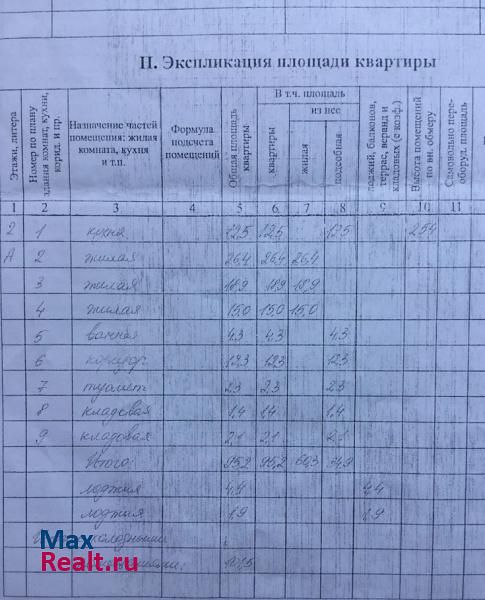 II. Экспликация площади квартиры
Этажи, литера
Номер по плану здания комнат, кухни, корид. и пр.
Назначение частей помещения: жилая комната, кухня и т.п.
Формула подсчета помещений
Общая площадь квартиры
В т.ч. площадь
квартиры
из нее
жилая
подсобная
лоджий, балконов, террас, веранд и кладовых (с коэф.)
Высота помещений по вн. обмеру
Самовольно пере- оборуд. площадь
1 2 3 4 5 6 7 8 9 10 11
2 1 кухня 12,5 12,5 12,5 2,54
А 2 жилая 26,4 26,4 26,4
3 жилая 18,9 18,9 18,9
4 жилая 15,0 15,0 15,0
5 ванная 4,3 4,3 4,3
6 коридор 12,3 12,3 12,3
7 туалет 2,3 2,3 2,3
8 кладовая 1,4 1,4 1,4
9 кладовая 2,1 2,1 2,1
Итого: 95,2 95,2 60,3 34,9
лоджия 4,4 4,4
лоджия 1,9 1,9
холодными
101,5
Max
Realt.ru